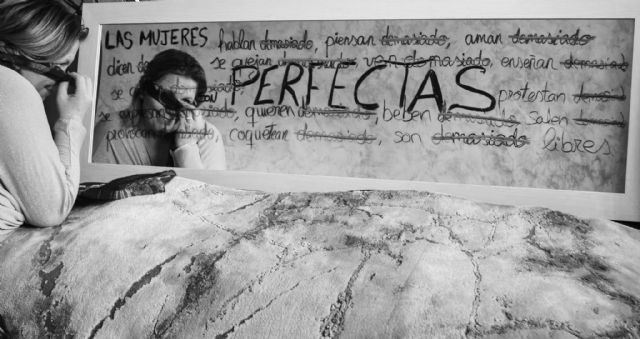 LAS MUJERES hablan demasiado, piensan demasiado, aman demasiado,
dicen demasiado, se quejan demasiado, ven demasiado, enseñan demasiado,
se SON PERFECTAS protestan demasiado,
se, quieren demasiado, beben demasiado, salen demasiado,
provocan demasiado, coquetean demasiado, son demasiado libres